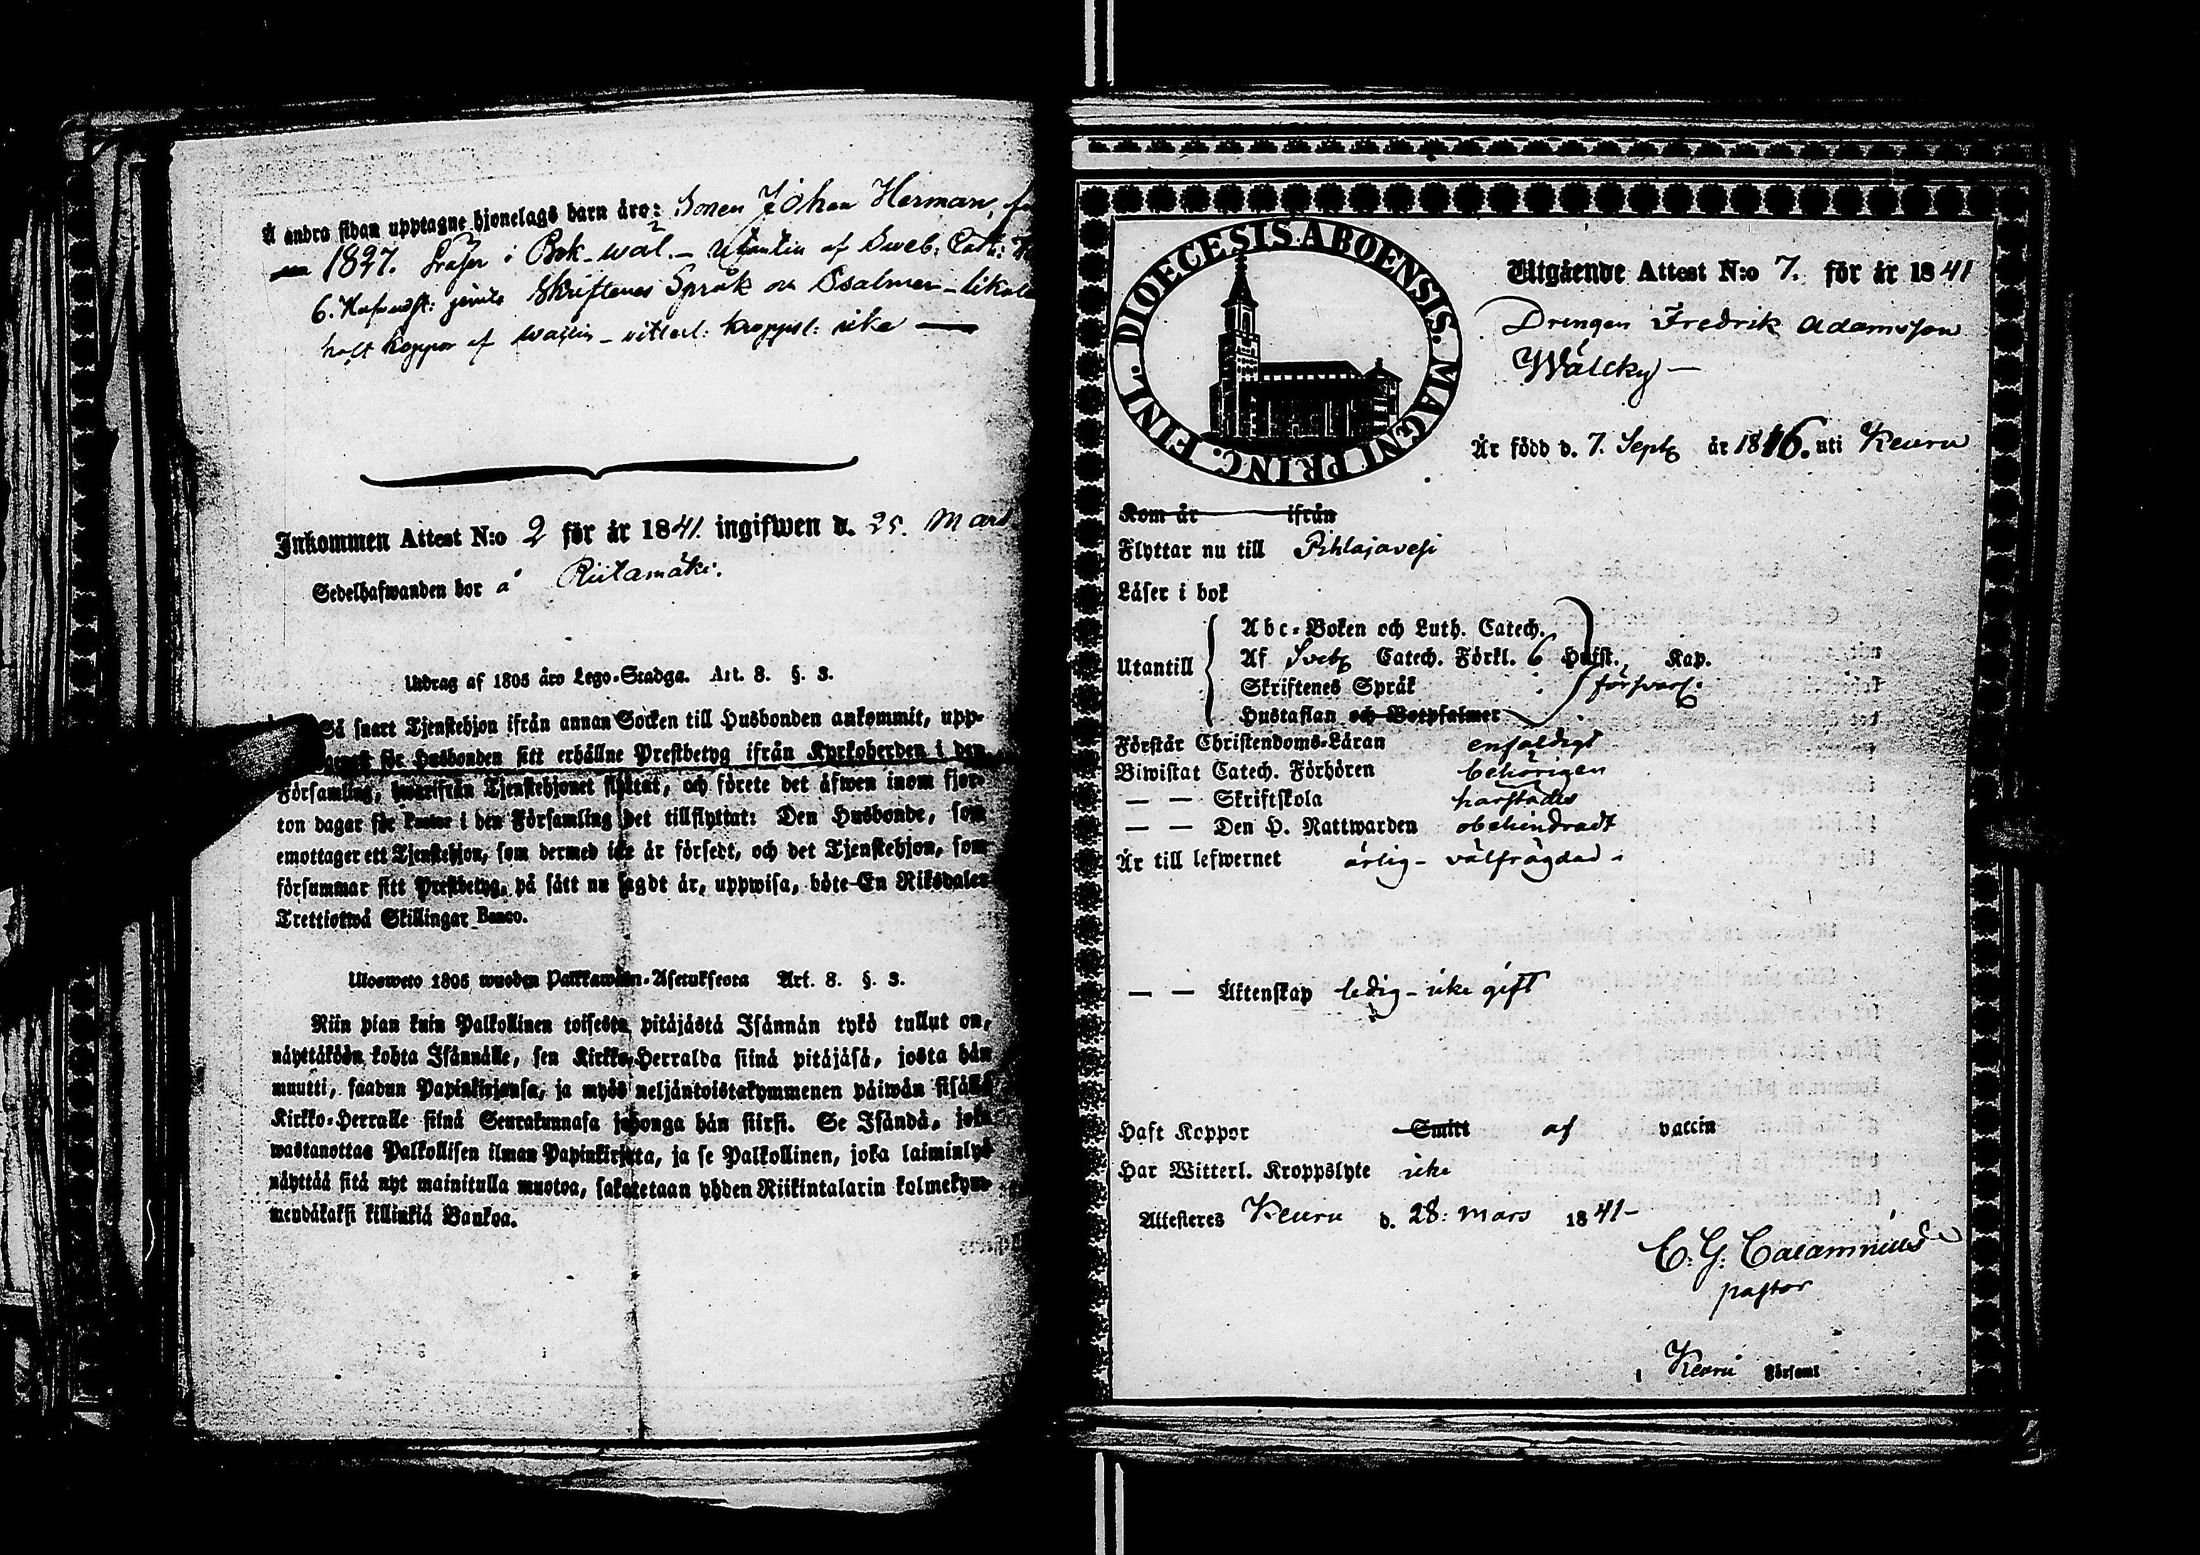 Å andra sidan upptagne hjonelags barn äro: Sonen Johan Herman,
1827. Läser i Bok wäl. – Utantill af Sveb. Cat:
6. Hufvudst: jemte Skriftenes Språk och Psalmer – likale
haft koppor af vaccin – vitterl: kroppsl: icke —
Inkommen Attest N:o 2 för år 1841. ingifwen d. 25. Mars
Sedelhafwanden bor å Riitamäki.
Utdrag af 1805 års Lego-Stadga. Art. 8. §. 3.
Så snart Tjenstehjon ifrån annan Socken till Husbonden ankommit, upp-
för Husbonden sitt erhållne Prestbetyg ifrån Kyrkoherden i den
Församling, hwarifrån Tjenstehjonet flyttat, och förete det äfwen inom fjor-
ton dagar för i den Församling det tillflyttat: Den Husbonde, som
emottager ett Tjenstehjon, som dermed icke är försedt, och det Tjenstehjon, som
försummar sitt Prestbetyg, på sätt nu sagdt är, uppwisa, böte En Riksdaler
Trettiotwå Skillingar Banco.
Ulosweto 1805 wuoden Palkkawäen-Asetuksesta Art. 8. §. 3.
Niin pian kuin Palkollinen toisesta pitäjästä Isännän tykö tullut on,
näyttäköön kohta Isännälle, sen Kirkko-Herralda siinä pitäjäsä, josta hän
muutti, saadun Papinkirjansa, ja myös neljäntoistakymmenen päiwän sisällä
Kirkko-Herralle siinä Seurakunnasa johonga hän siirsi. Se Isändä, joka
wastanottaa Palkollisen ilman Papinkirjata, ja se Palkollinen, joka laiminlyö
näyttää sitä nyt mainitulla muotoa, sakotetaan yhden Riikintalarin kolmekym-
mendäkaksi killinkiä Bankoa.
DIOECESIS. ABOENSIS. MAGNI PRINC. FINL.
Utgående Attest N:o 7. för år 1841
Drengen Fredrik Adamsson
Wälcky –
Är född d. 7. Septb år 1816. uti Keuru
Kom år ifrån
Flyttar nu till Pihlajavesi
Läser i bok
Abc-Boken och Luth. Catech.
Utantill Af Sveb Catech. Förkl. 6 Hufst., Kap.
Skriftenes Språk försvarl:
Hustaflan och Botpsalmer
Förstår Christendoms-Läran enfaldigt
Biwistat Catech. Förhören behörigen
— — Skriftskola härstädes
— — Den H. Nattwarden obehindradt
Är till lefwernet ärlig – välfrägdad
— — Äktenskap ledig – icke gift
Haft Koppor Smitt af vaccin
Har Witterl. Kroppslyte icke
Attesteres Keuru d. 28: mars 1841 –
C. G. Calamnius
pastor
i Keuru Församl